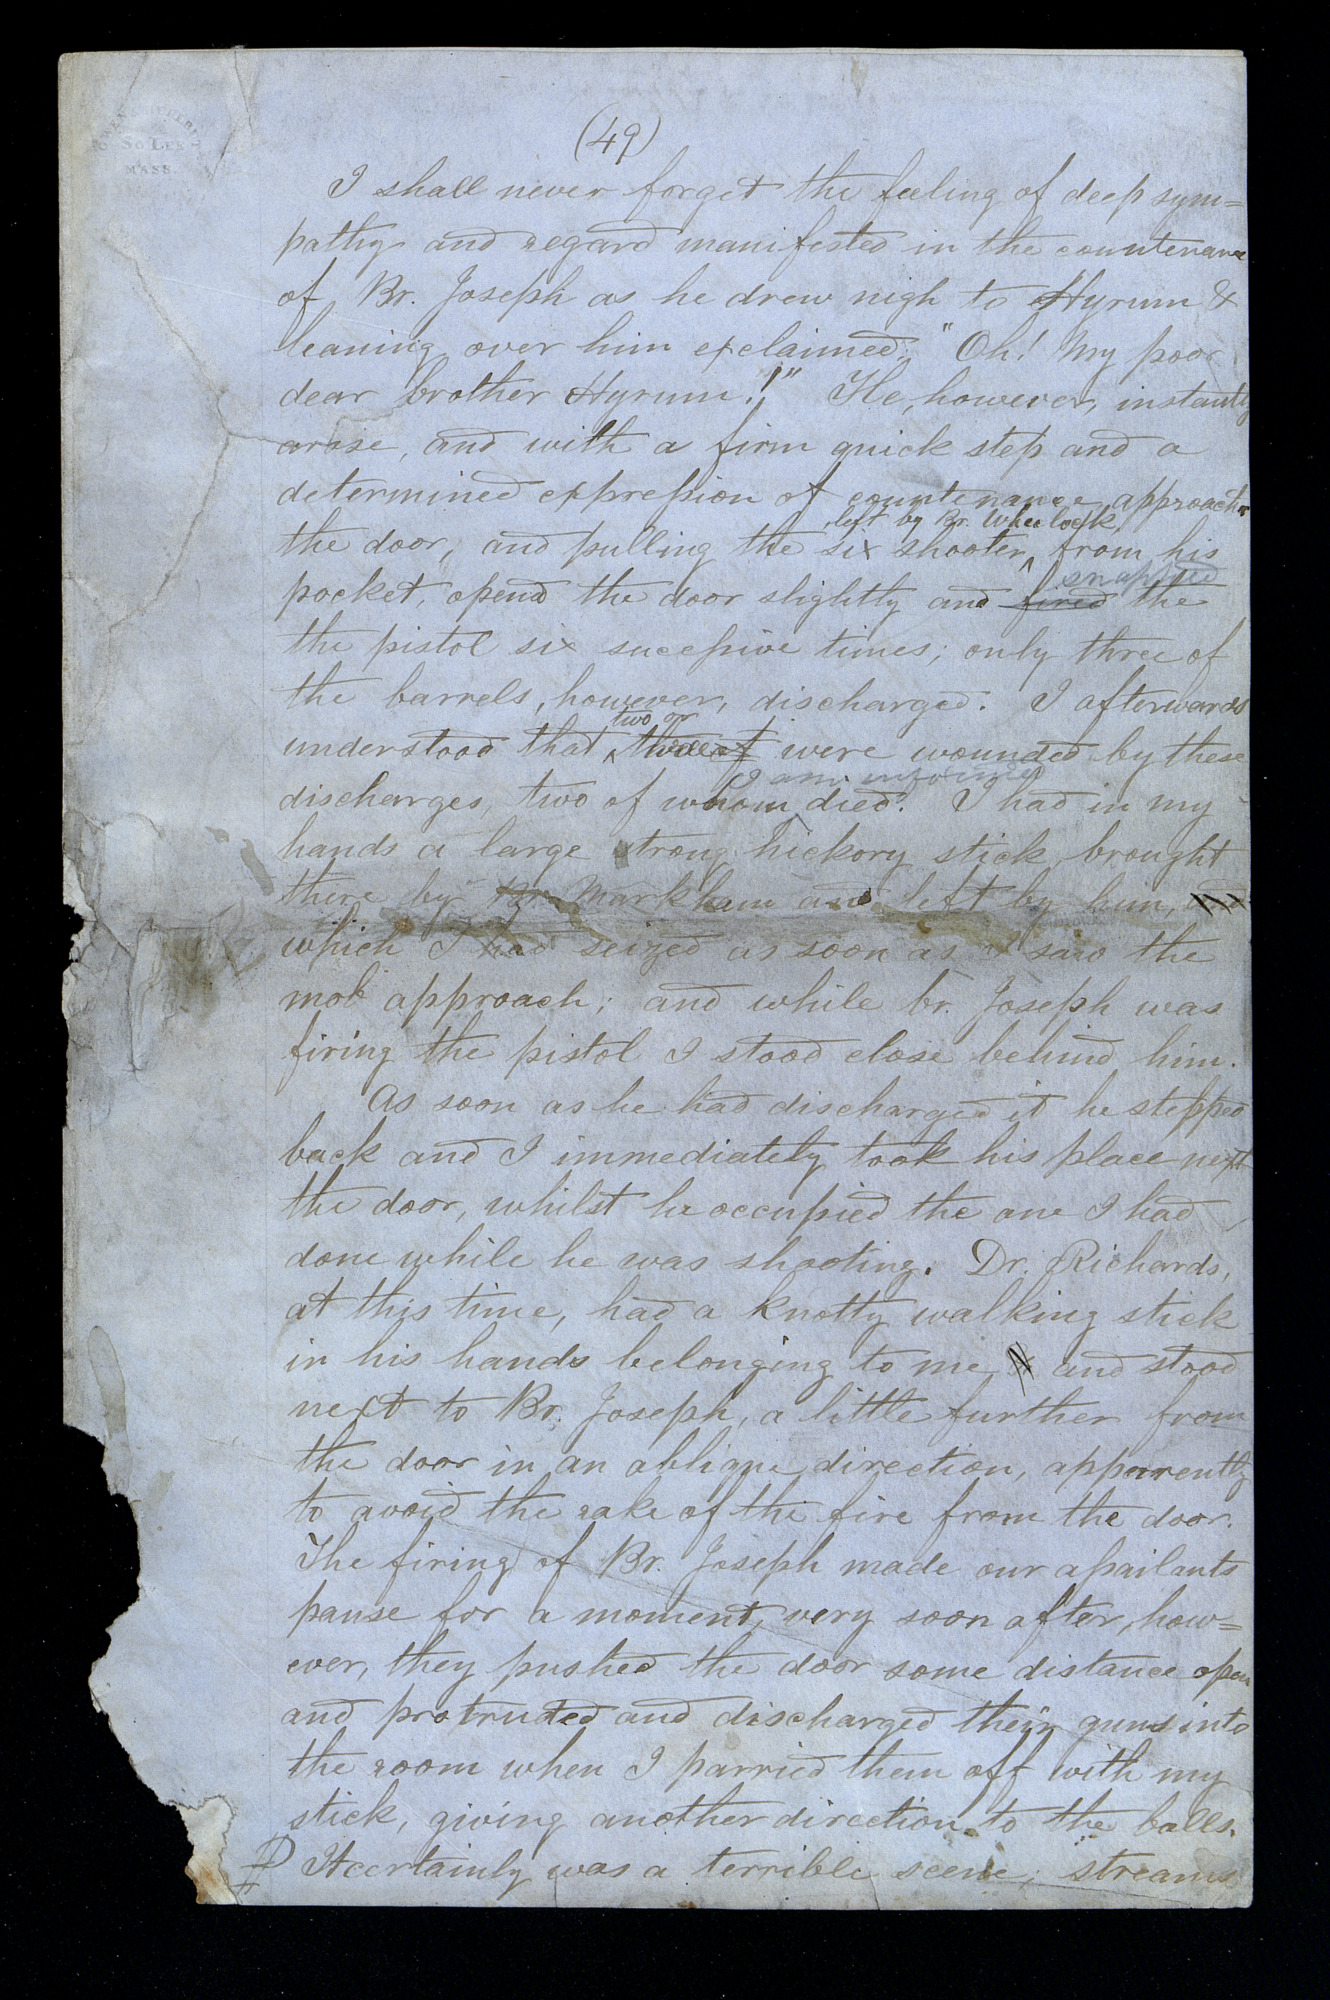 (49)
I shall never forget the feeling of deep sym=
pathy and regard manifested in the countenance
of Br. Joseph as he drew nigh to Hyrum &
leaning over him exclaimed; "Oh! My poor
dear brother Hyrum!" He, however, instantly
arose, and with a firm quick step and a
determined expression of countenance, approached
left by Br. Wheelock,
the door, and pulling the six shooter ^ from his
snapped
pocket, opend the door slightly and fired the
the pistol six successive times; only three of
the barrels, however, discharged. I afterwards
two or
understood that ^ three of were wounded by these
I am informed
discharges, two of whom ^ died. I had in my
hands a large strong hickory stick brought
there by Br. Markham and left by him, and
which I had seized as soon as I saw the
mob approach; and while br. Joseph was
firing the pistol I stood close behind him.
As soon as he had discharged it he stepped
back and I immediately took his place next
the door, whilst he occupied the one I had
done while he was shooting. Dr. Richards,
at this time, had a knotty walking stick
in his hands belonging to me & and stood
next to Br. Joseph, a little further from
the door in an oblique direction, apparently
to avoid the rake of the fire from the door.
The firing of Br. Joseph made our assailants
pause for a moment, very soon after, how=
ever, they pushed the door some distance open
and protruded and discharged their guns into
the room when I parried them off with my
stick, giving another direction to the balls.
It certainly was a terrible scene; streams